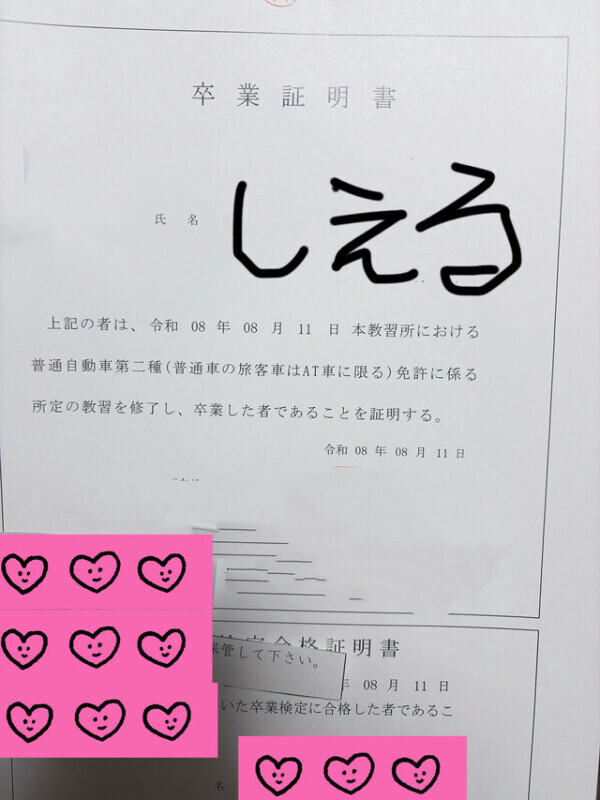 卒業証明書
氏名 しえる
上記の者は、令和 08 年 08 月 11 日 本教習所における
普通自動車第二種(普通車の旅客車はAT車に限る)免許に係る
所定の教習を修了し、卒業した者であることを証明する。
令和 08 年 08 月 11 日
合格証明書
保管して下さい。
年 08 月 11 日
いた卒業検定に合格した者であるこ
名